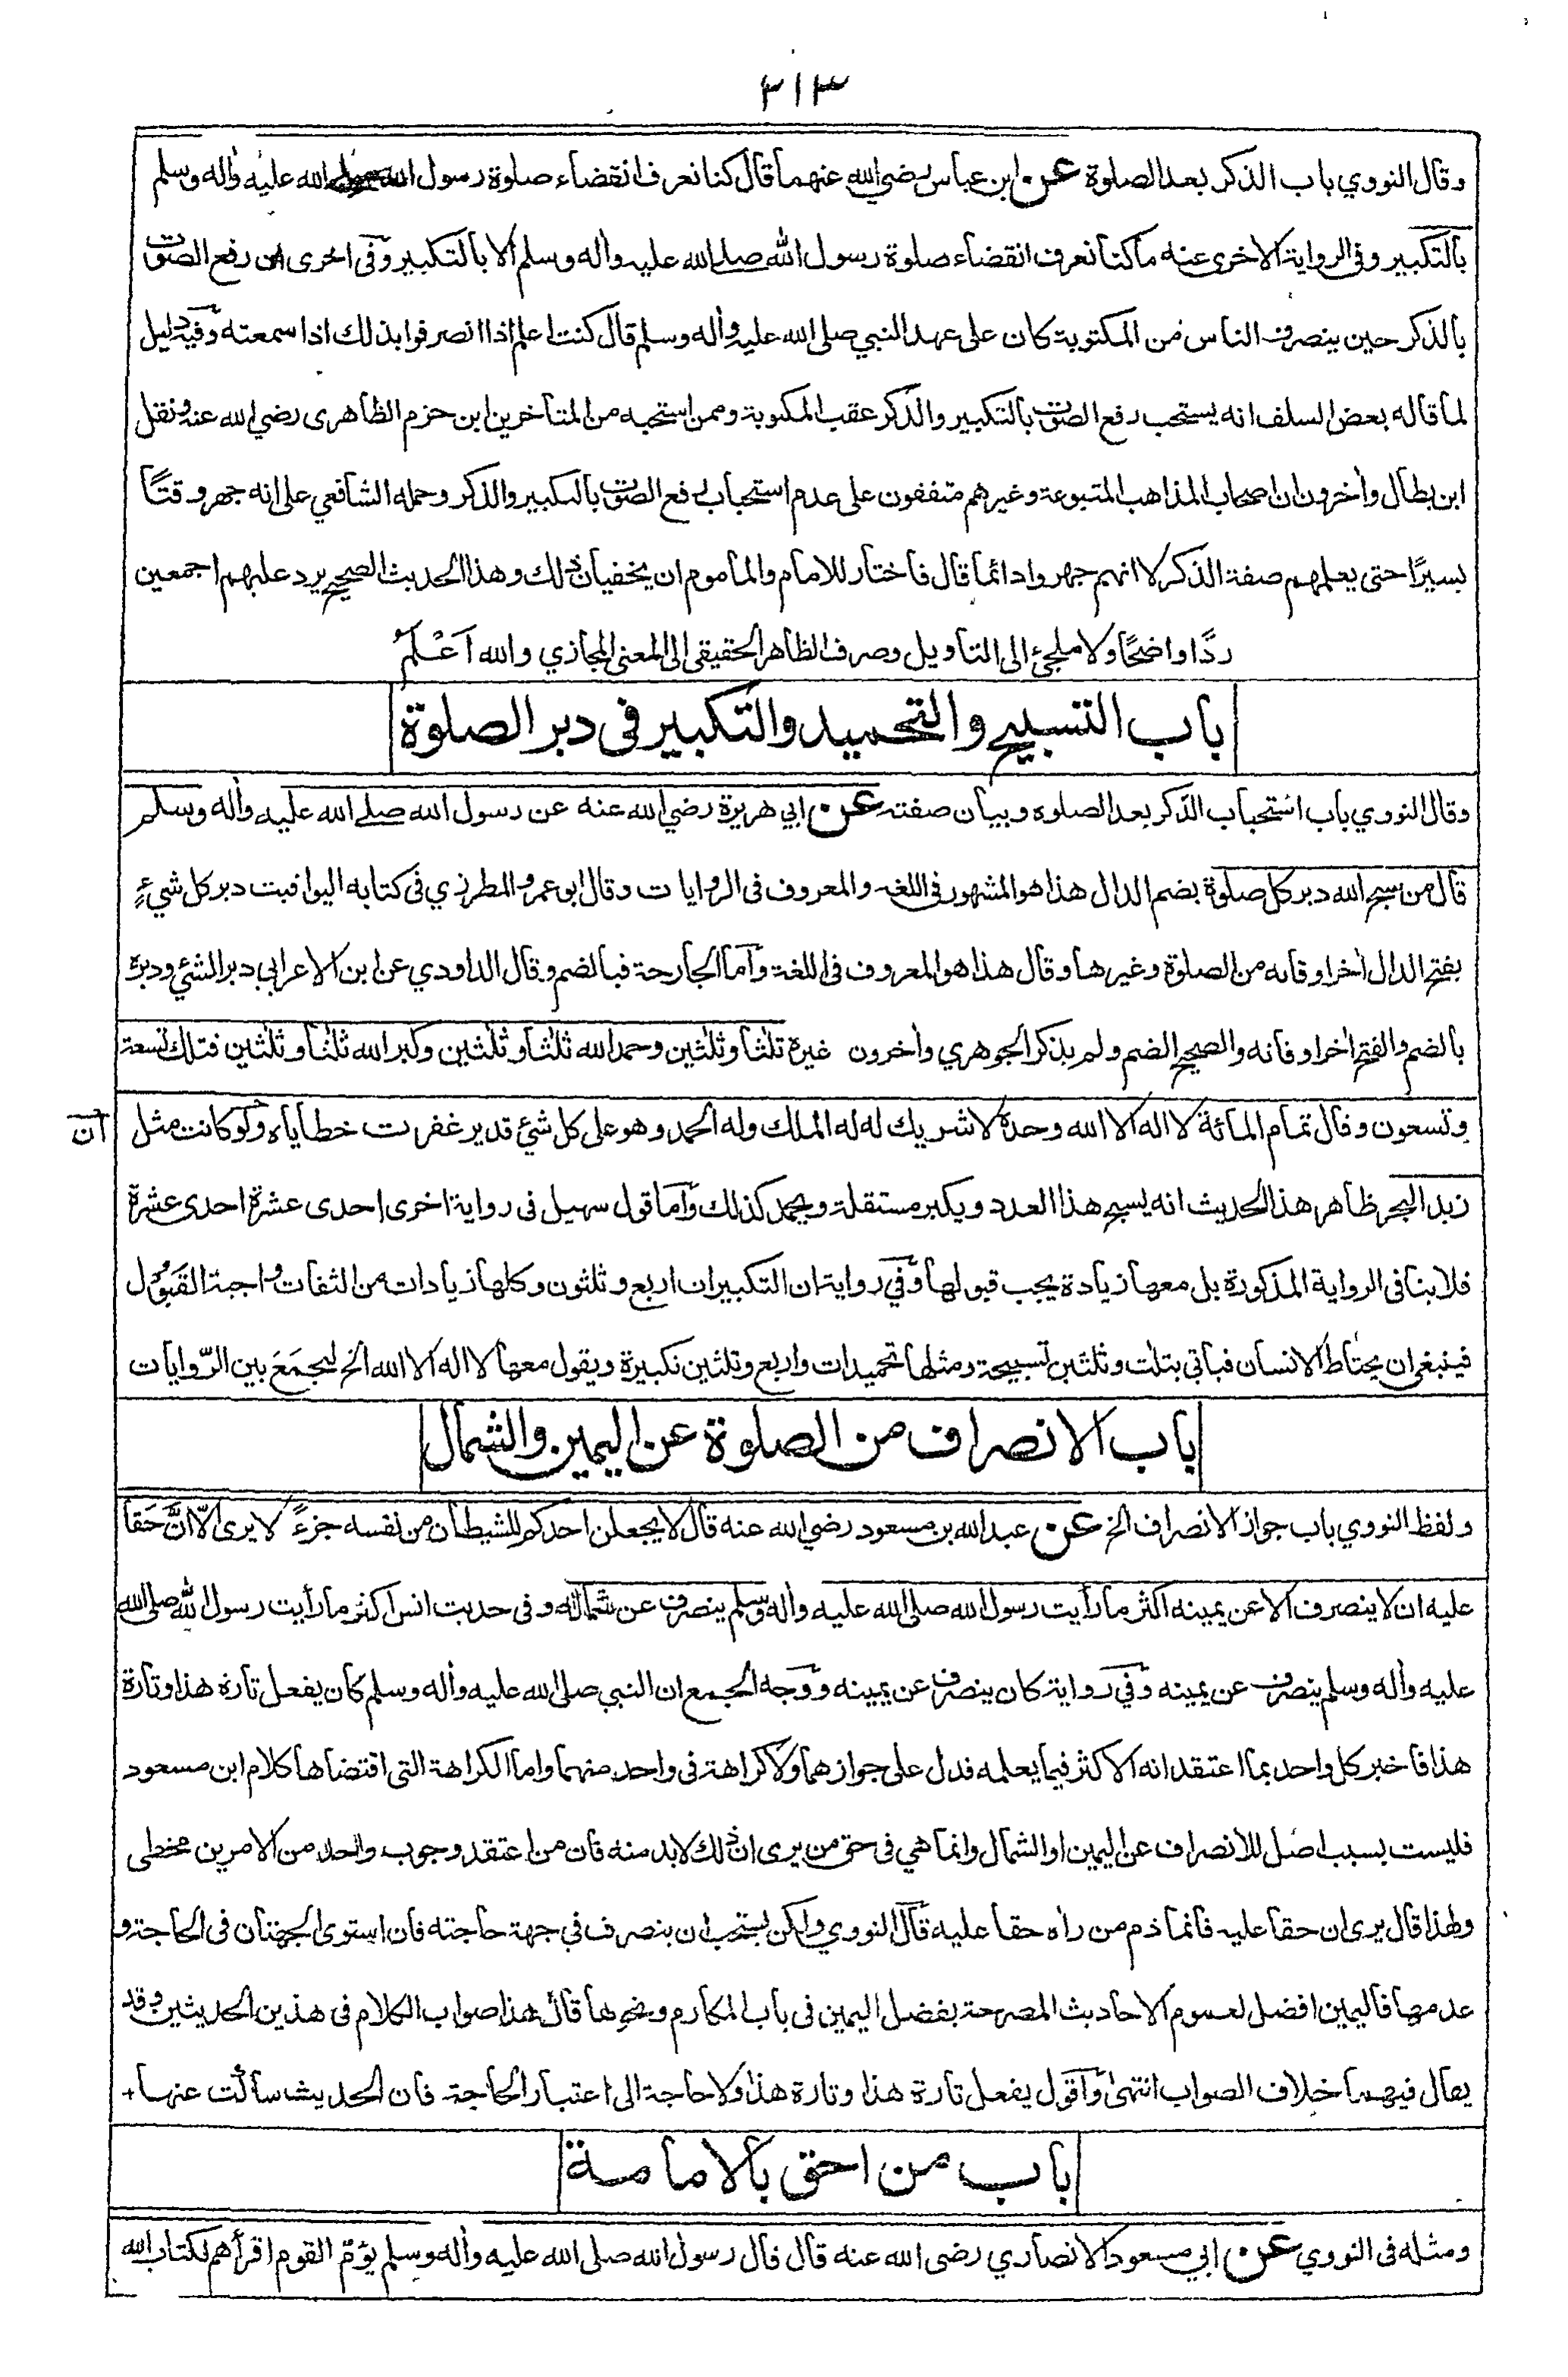 ٢١٣
وقال النووي باب الذكر بعد الصلوة عن ابن عباس رضي الله عنهما قال كنا نعرف انقضاء صلوة رسول الله صلى الله عليه واٰله وسلم
بالتكبير وفى الرواية الاخرى عنه ما كنا نعرف انقضاء صلوة رسول الله صلے الله عليه واٰله وسلم الا بالتكبير وفى اخرى ان رفع الصوت
بالذكر حين ينصرف الناس من المكتوبة كان على عهد النبي صلى الله عليه واٰله وسلم قال كنت اعلم اذا انصرفوا بذلك اذا سمعته وفيه دليل
لما قاله بعض السلف انه يستحب رفع الصوت بالتكبير والذكر عقب المكتوبة وممن استحبه من المتأخرين ابن حزم الظاهرى رضي الله عنه ونقل
ابن بطال واٰخرون ان اصحاب المذاهب المتبوعة وغيرهم متفقون على عدم استحباب رفع الصوت بالتكبير والذكر وحمله الشافعي على انه جهر وقتًا
يسيرًا حتى يعلمهم صفة الذكر لا انهم جهروا دائما قال فاختار للامام والمأموم ان يخفيان ذلك وهذا الحديث الصحيح يرد عليهم اجمعين
ردًّا واضحًا ولا ملجئ الى التاويل وصرف الظاهر الحقيقى الى المعنى المجازي والله اَعْلَمُ
باب التسبيح والتحميد والتكبير فى دبر الصلوة
وقال النووي باب استحباب الذكر بعد الصلوه وبيان صفته عن ابي هريرة رضي الله عنه عن رسول الله صلے الله عليه واٰله وسلم
قال من سبح الله دبر كل صلوة بضم الدال هذا هو المشهور فى اللغه والمعروف فى الروايات وقال ابو عمرو المطرزي فى كتابه اليواقيت دبر كل شيءٍ
بفتح الدال اٰخر اوقاته من الصلوة وغيرها وقال هذا هو المعروف فى اللغة واما الجارحة فبالضم وقال الداودي عن ابن الاعرابي دبر الشئ ودبره
بالضم والفتح اٰخر اوقاته والصحيح الضم ولم يذكر الجوهري واٰخرون غيره ثلثا وثلثين وحمد الله ثلثا وثلثين وكبر الله ثلثا وثلثين فتلك تسعة
وتسعون وقال تمام المائة لا اله الا الله وحده لا شريك له له الملك وله الحمد وهو على كل شئ قدير غفرت خطاياه ولو كانت مثل
ان
زبد البحر ظاهر هذا الحديث انه يسبح هذا العدد ويكبر مستقلة ويحمد كذلك واما قول سهيل فى رواية اخرى احدى عشرة احدى عشرة
فلا ينافى الرواية المذكورة بل معها زيادة يجب قبولها وفي رواية ان التكبيرات اربع وثلثون وكلها زيادات من الثقات واجبة القَبُوْل
فينبغى ان يحتاط الانسان فيأتى بثلث وثلثين تسبيحة ومثلها تحميدات واربع وثلثين تكبيرة ويقول معها لا اله الا الله الخ ليجمَعَ بين الرّوايات
باب الانصراف من الصلوة عن اليمين والشمال
ولفظ النووي باب جواز الانصراف الخ عن عبد الله بن مسعود رضي الله عنه قال لا يجعلن احدكم للشيطان من نفسه جزءً لا يرى الّا اَنَّ حَقا
عليه ان لا ينصرف الا عن يمينه اكثر ما رأيت رسول الله صلى الله عليه واٰله وسلم ينصرف عن شماله وفى حديث انس اكثر ما رأيت رسول الله صلى الله
عليه واٰله وسلم ينصرف عن يمينه وفي رواية كان ينصرف عن يمينه ووجه الجمع ان النبي صلى الله عليه واٰله وسلم كان يفعل تارة هذا وتارة
هذا فاخبر كل واحد بما اعتقد انه الاكثر فيما يعلمه فدل على جوازهما ولا كراهة فى واحد منهما واما الكراهة التى اقتضاها كلام ابن مسعود
فليست بسبب اصل للانصراف عن اليمين او الشمال وانما هي فى حق من يرى ان ذلك لابد منه فان من اعتقد وجوب واحد من الامرين مخطى
ولهذا قال يرى ان حقا عليه فانما ذم من راٰه حقا عليه قال النووي ولكن يستحب ان ينصرف في جهة حاجته فان استوى الجهتان فى الحاجة و
عدمها فاليمين افضل لعموم الاحاديث المصرحة بفضل اليمين فى باب المكارم ونحوها قال هذا صواب الكلام فى هذين الحديثين وقد
يقال فيهما خلاف الصواب انتهى واقول يفعل تارة هذا وتارة هذا ولا حاجة الى اعتبار الحاجة فان الحديث ساكت عنها +
باب من احق بالامامة
ومثله فى النووي عن ابي مسعود الانصاري رضى الله عنه قال قال رسول الله صلى الله عليه واٰله وسلم يؤمّ القوم اقرأهم لكتاب الله